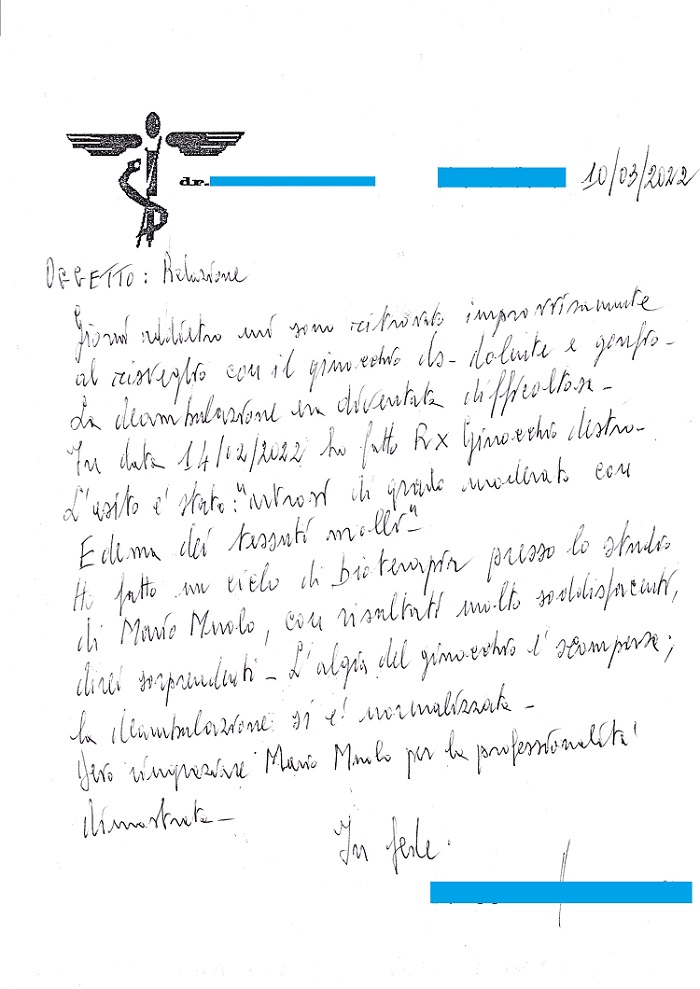 dr.
10/03/2022
OGGETTO: Relazione
Giorni addietro mi sono ritrovato improvvisamente
al risveglio con il ginocchio ds- dolente e gonfio-
La deambulazione era diventata difficoltosa-
In data 14/02/2022 ho fatto Rx Ginocchio destro-
L'esito e' stato: "Artrosi di grado moderato con
Edema dei tessuti molli"-
Ho fatto un ciclo di bioterapia presso lo studio
di Mario, con risultati molto soddisfacenti,
direi sorprendenti- L'algia del ginocchio e' scomparsa;
la deambulazione si e' normalizzata-
Devo ringraziare Mario per la professionalita'
dimostrata-
In fede.